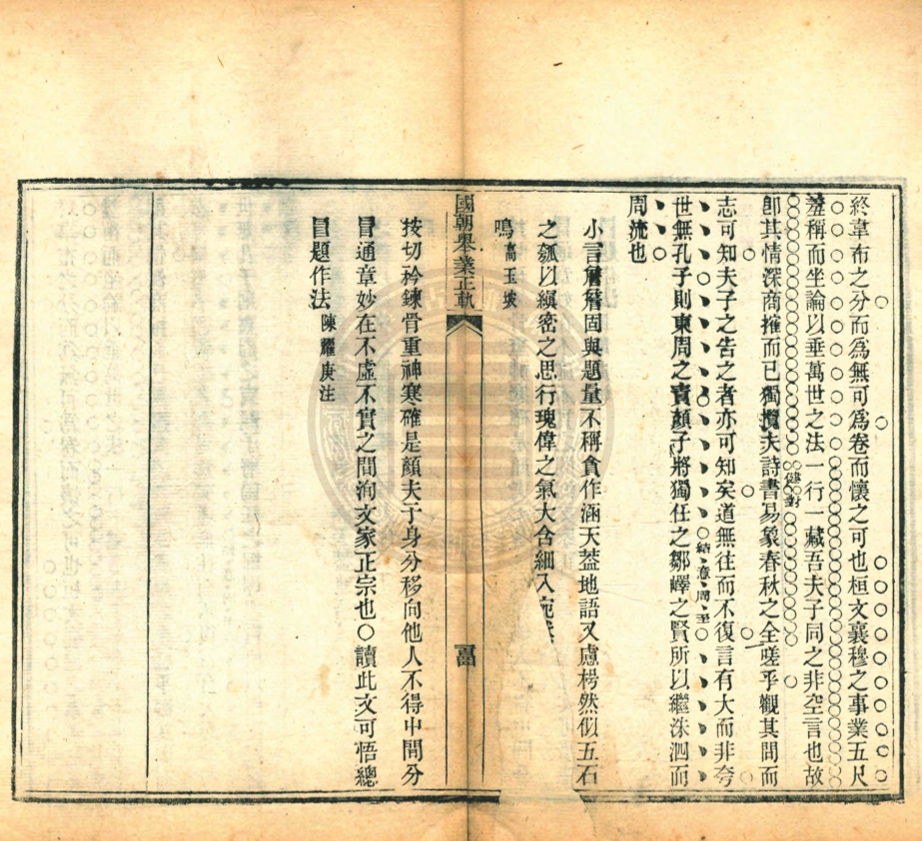 終韋布之分而爲無可爲卷而懷之可也桓文襄穆之事業五尺
羞稱而坐論以垂萬世之法一行一藏吾夫子同之非空言也故
健對
卽其情深商搉而已獨攬夫詩書易象春秋之全嗟乎觀其問而
志可知夫子之告之者亦可知矣道無往而不復言有大而非夸
結意周至
世無孔子則東周之賣顏子將獨任之鄒嶧之賢所以繼洙泗而
周流也
小言詹詹固與題量不稱貪作涵天蓋地語又慮枵然似五石
之瓠以縝密之思行瑰偉之氣大含細入
鳴高玉坡
國朝舉業正軌
按切矜鍊骨重神寒確是顏夫子身分移向他人不得中間分
冒通章妙在不虛不實之間洵文家正宗也○讀此文可悟總
冒題作法陳耀庚注